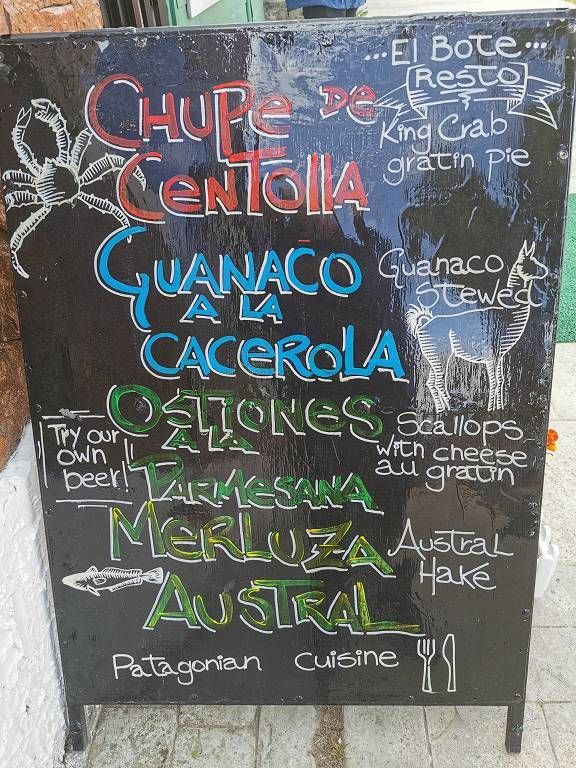 ...El Bote...
Resto
Chupe de
Centolla
King Crab
gratin pie
Guanaco
a la
cacerola
Guanaco
Stewed
Ostiones
a la
Parmesana
Scallops
with cheese
au gratin
Try our
own
beer
Merluza
Austral
Austral
Hake
Patagonian cuisine